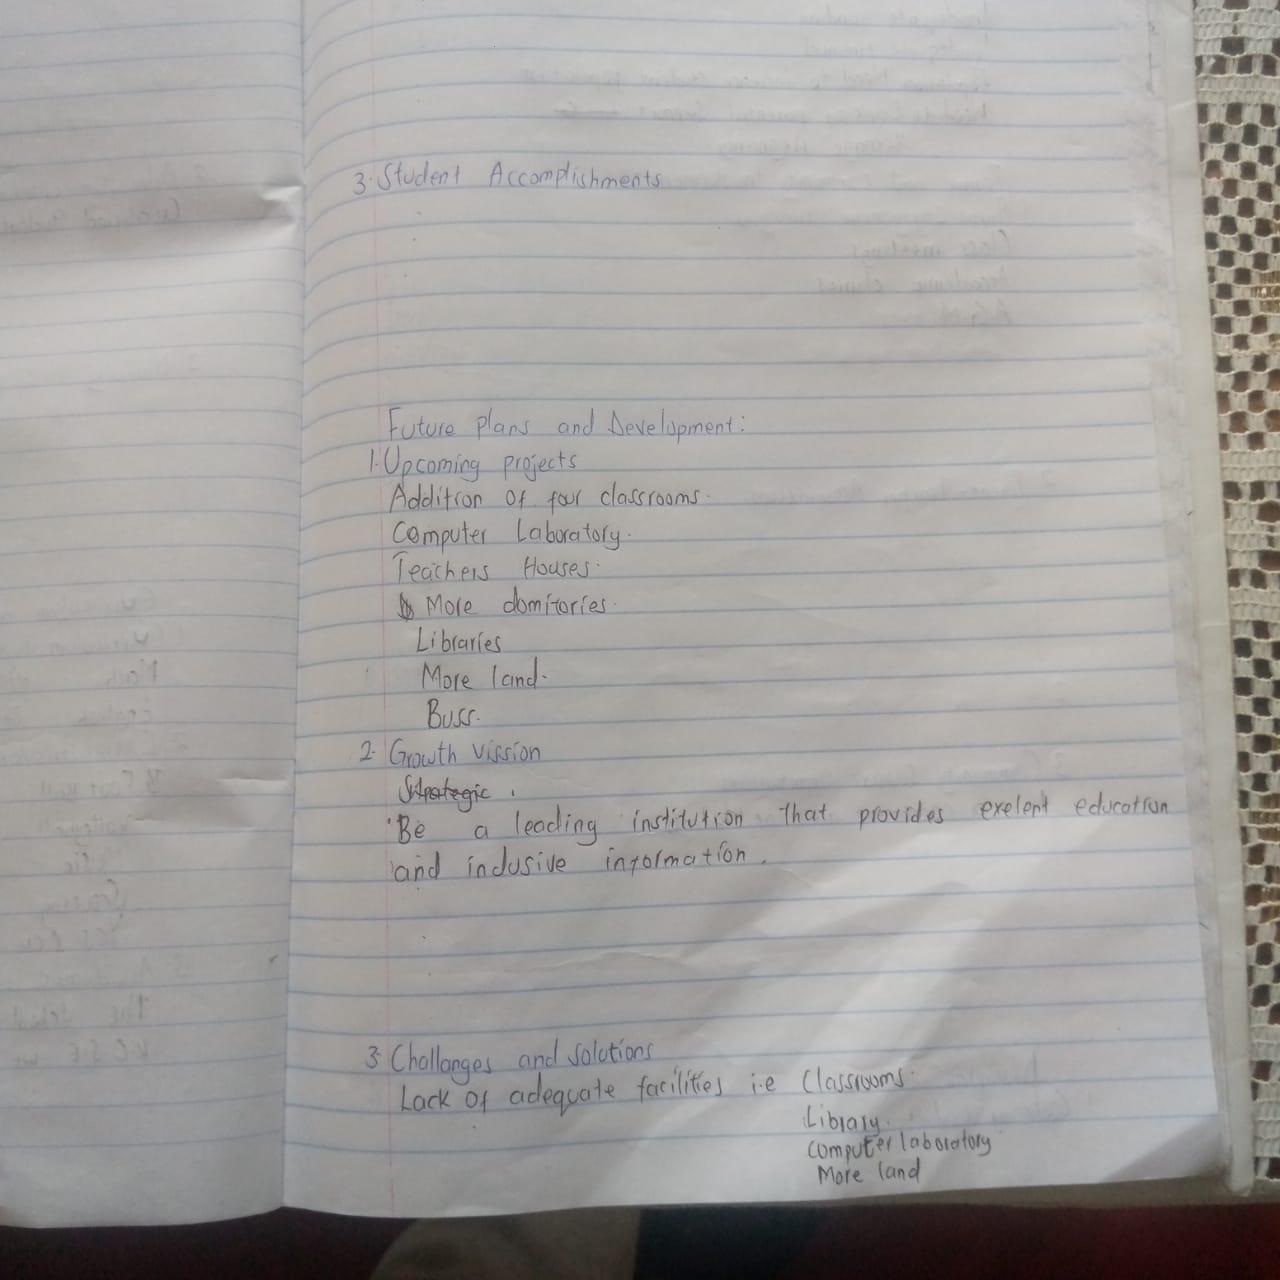 3. Student Accomplishments
Future plans and Development:
1. Upcoming projects
Addition of four classrooms.
Computer Laboratory.
Teachers Houses.
More domitories.
Libraries
More land.
Buss.
2. Growth vission
Strategic.
Be a leading institution that provides exelent education
and inclusive information.
3. Challanges and solutions
Lack of adequate facilities i.e Classrooms.
Library.
Computer laboratory
More land